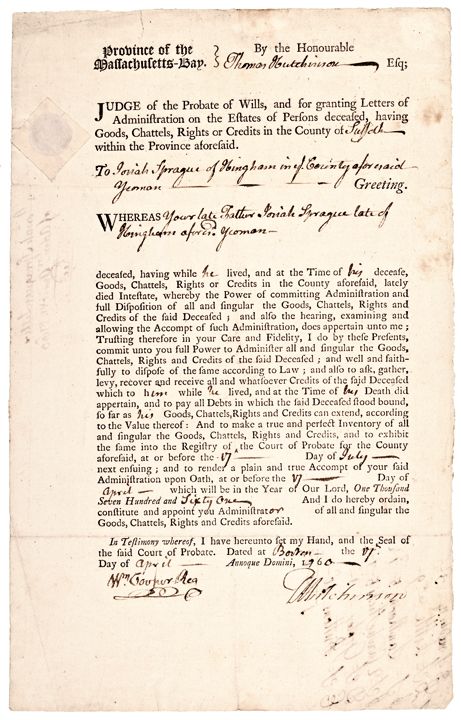 Province of the Massachusetts-Bay. } By the Honourable
Thomas Hutchinson Esq;
JUDGE of the Probate of Wills, and for granting Letters of
Administration on the Estates of Persons deceased, having
Goods, Chattels, Rights or Credits in the County of Suffolk
within the Province aforesaid.
To Josiah Sprague of Hingham in sd. County aforesaid
Yeoman Greeting.
WHEREAS Your late Father Josiah Sprague late of
Hingham aforesd. Yeoman
deceased, having while he lived, and at the Time of his decease,
Goods, Chattels, Rights or Credits in the County aforesaid, lately
died Intestate, whereby the Power of committing Administration and
full Disposition of all and singular the Goods, Chattels, Rights and
Credits of the said Deceased ; and also the hearing, examining and
allowing the Accompt of such Administration, does appertain unto me ;
Trusting therefore in your Care and Fidelity, I do by these Presents,
commit unto you full Power to Administer all and singular the Goods,
Chattels, Rights and Credits of the said Deceased ; and well and faith-
fully to dispose of the same according to Law ; and also to ask, gather,
levy, recover and receive all and whatsoever Credits of the said Deceased
which to him while he lived, and at the Time of his Death did
appertain, and to pay all Debts in which the said Deceased stood bound,
so far as his Goods, Chattels,Rights and Credits can extend, according
to the Value thereof : And to make a true and perfect Inventory of all
and singular the Goods, Chattels, Rights and Credits, and to exhibit
the same into the Registry of the Court of Probate for the County
aforesaid, at or before the Day of July
next ensuing ; and to render a plain and true Accompt of your said
Administration upon Oath, at or before the Day of
April which will be in the Year of Our Lord, One Thousand
Seven Hundred and Sixty One And I do hereby ordain,
constitute and appoint you Administrator of all and singular the
Goods, Chattels, Rights and Credits aforesaid.
In Testimony whereof, I have hereunto set my Hand, and the Seal of
the said Court of Probate. Dated at Boston the
Day of April Annoque Domini, 1760
Wm Cooper Reg
T Hutchinson